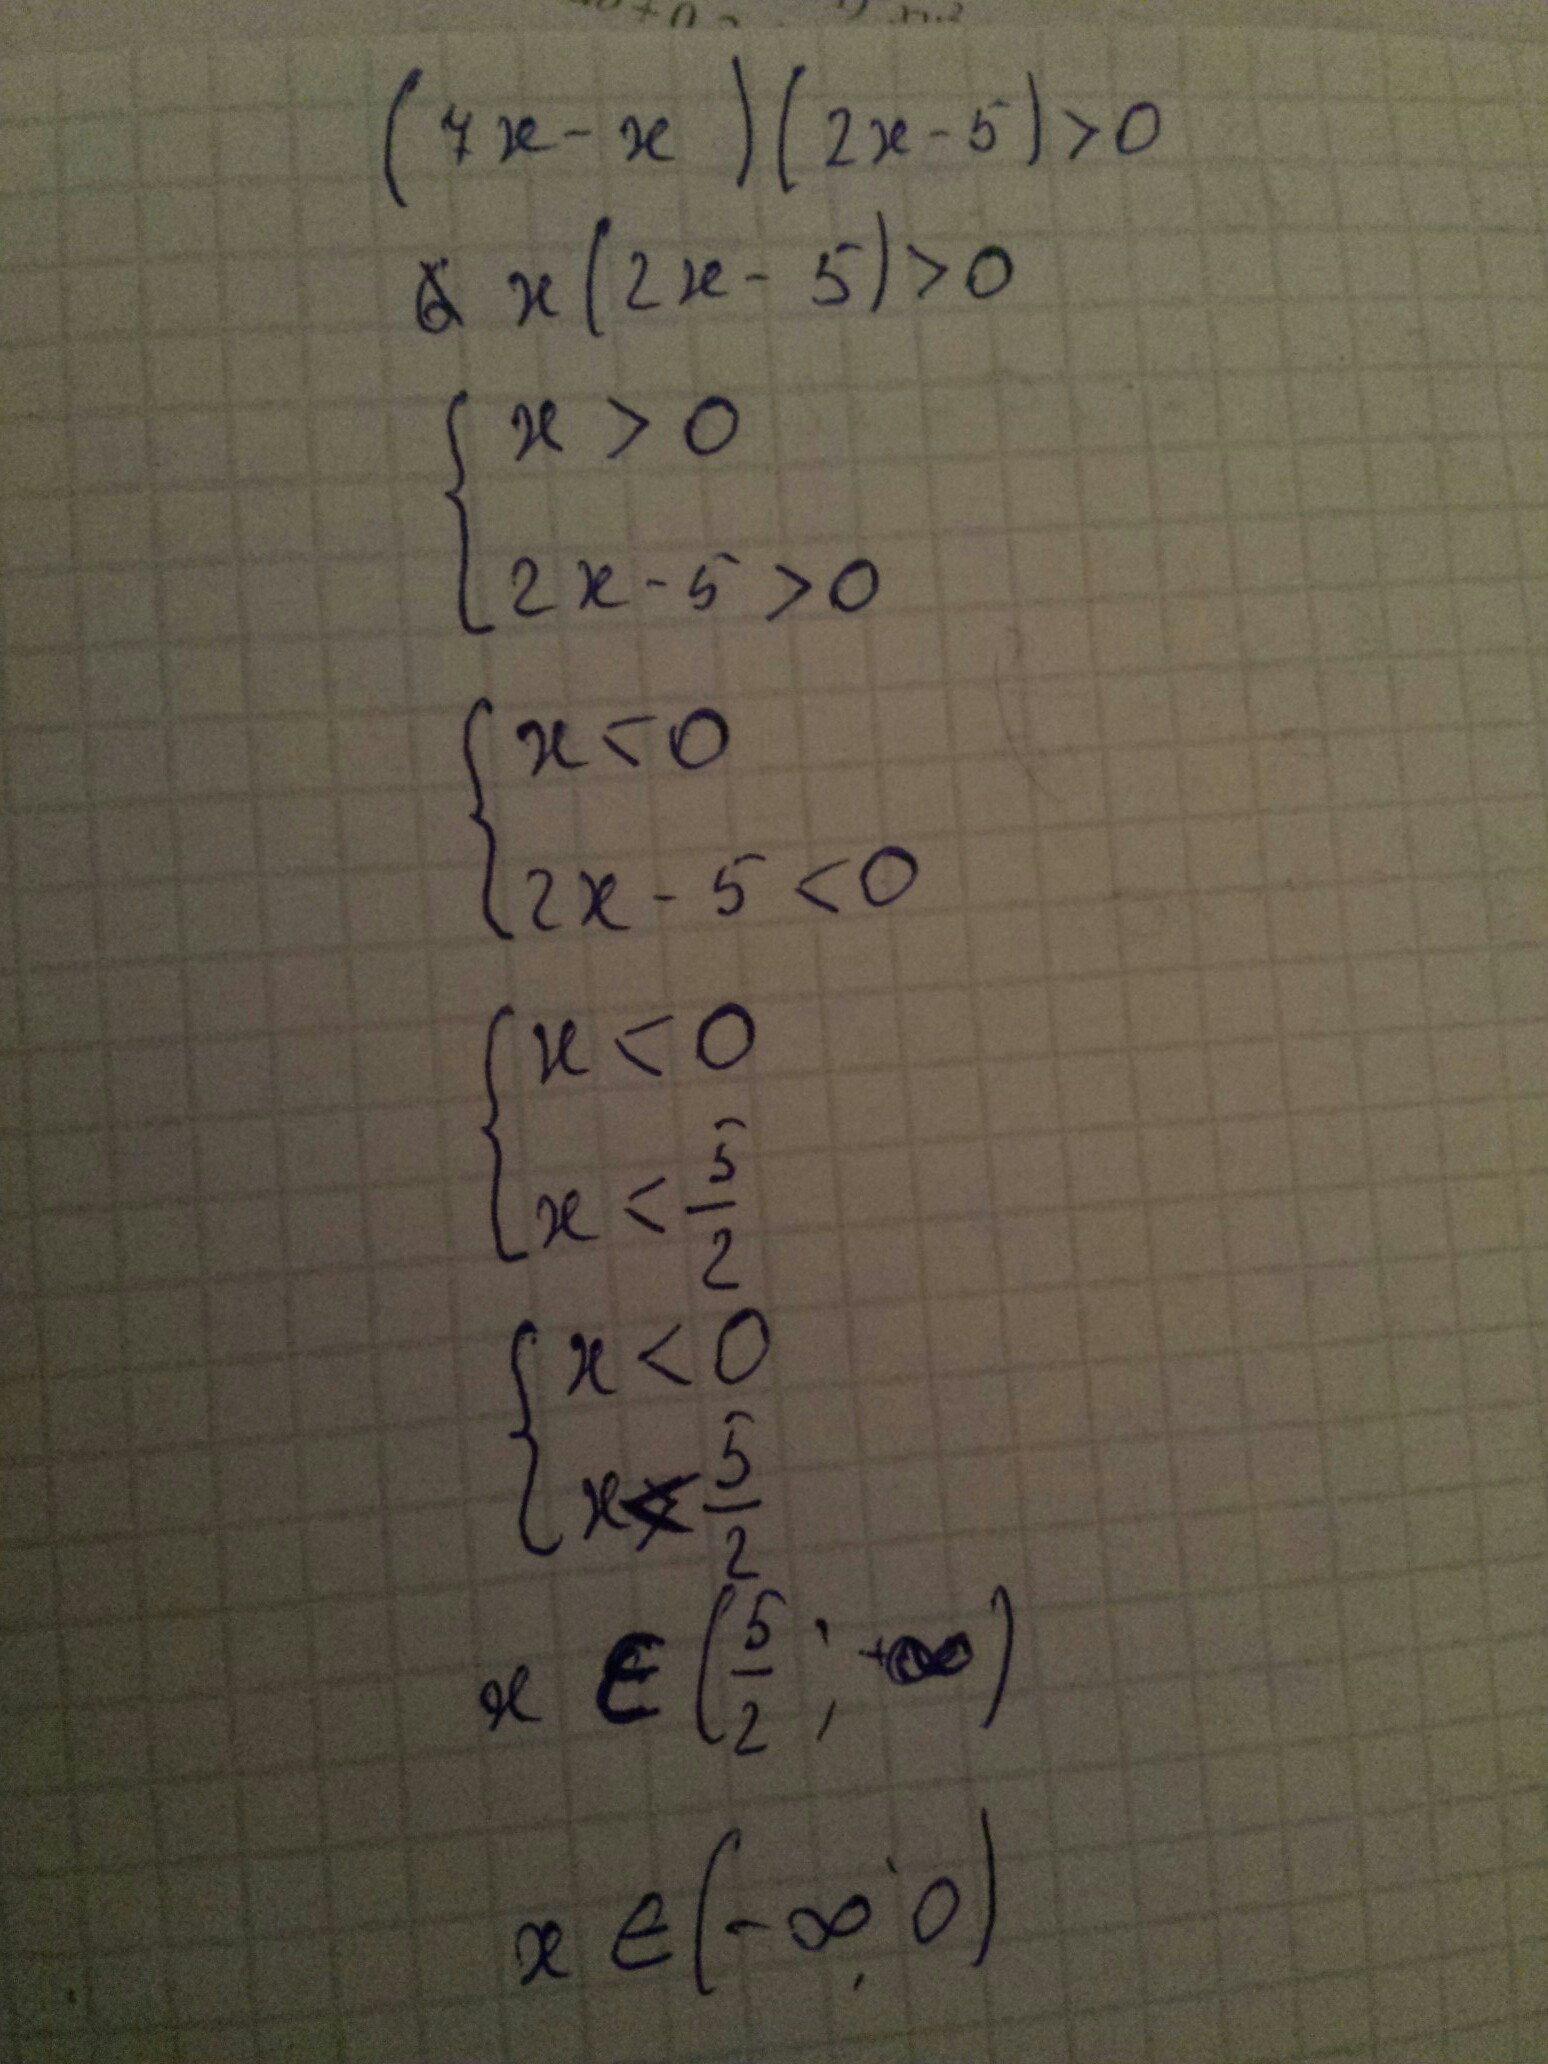 (7x-x)(2x-5)>0
6x(2x-5)>0
{x>0
2x-5>0
{x<0
2x-5<0
{x<0
x<5/2
{x<0
x<5/2
x∈(5/2;+∞)
x∈(-∞;0)